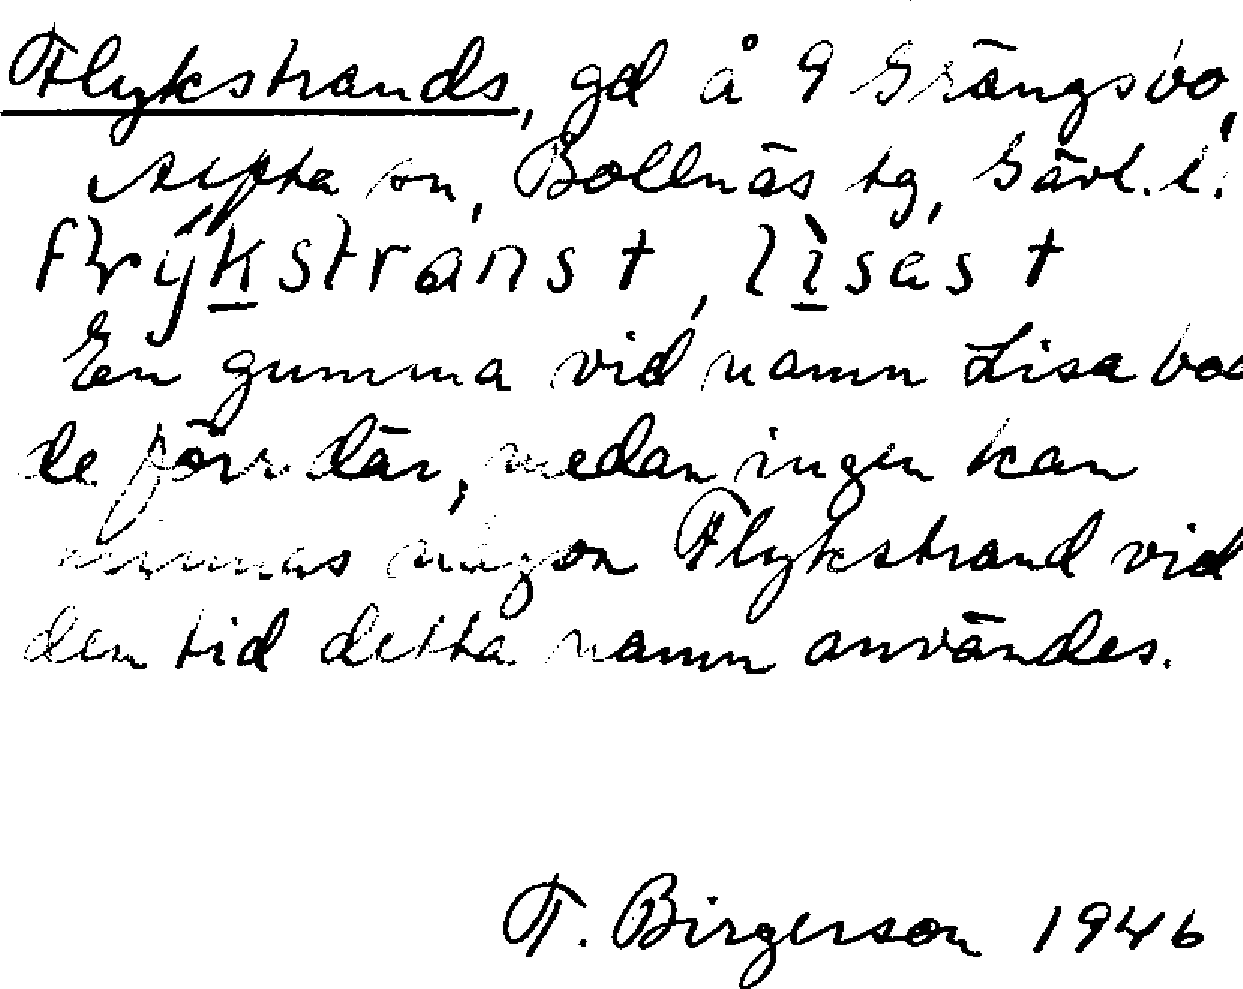 Flykstrands, gd å 9 Grängsbo,
Alfta sn, Bollnäs tg, Gävl. l.
lìsas t
En gumma vid namn Lisa bod-
de förr där, medan ingen kan
minnas någon Flykstrand vid
den tid detta namn användes.
F. Birgerson 1946